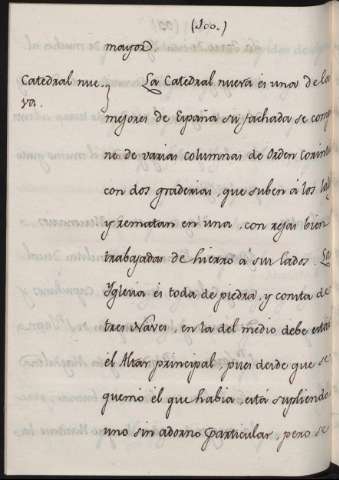 (100.)
mayor.
Catedral nue-
va.
La Catedral nueva es una de las
mejores de España su fachada se compo
ne de varias columnas de Orden Corint
con dos graderias, que suben á los lad
y rematan en una, con rejas bien
trabajadas de hierro á sus lados. La
Iglesia es toda de piedra, y consta de
tres Naves, en la del medio debe estar
el Altar principal, pues desde que se
quemó el que habia, está supliendo
uno sin adorno particular, pero se